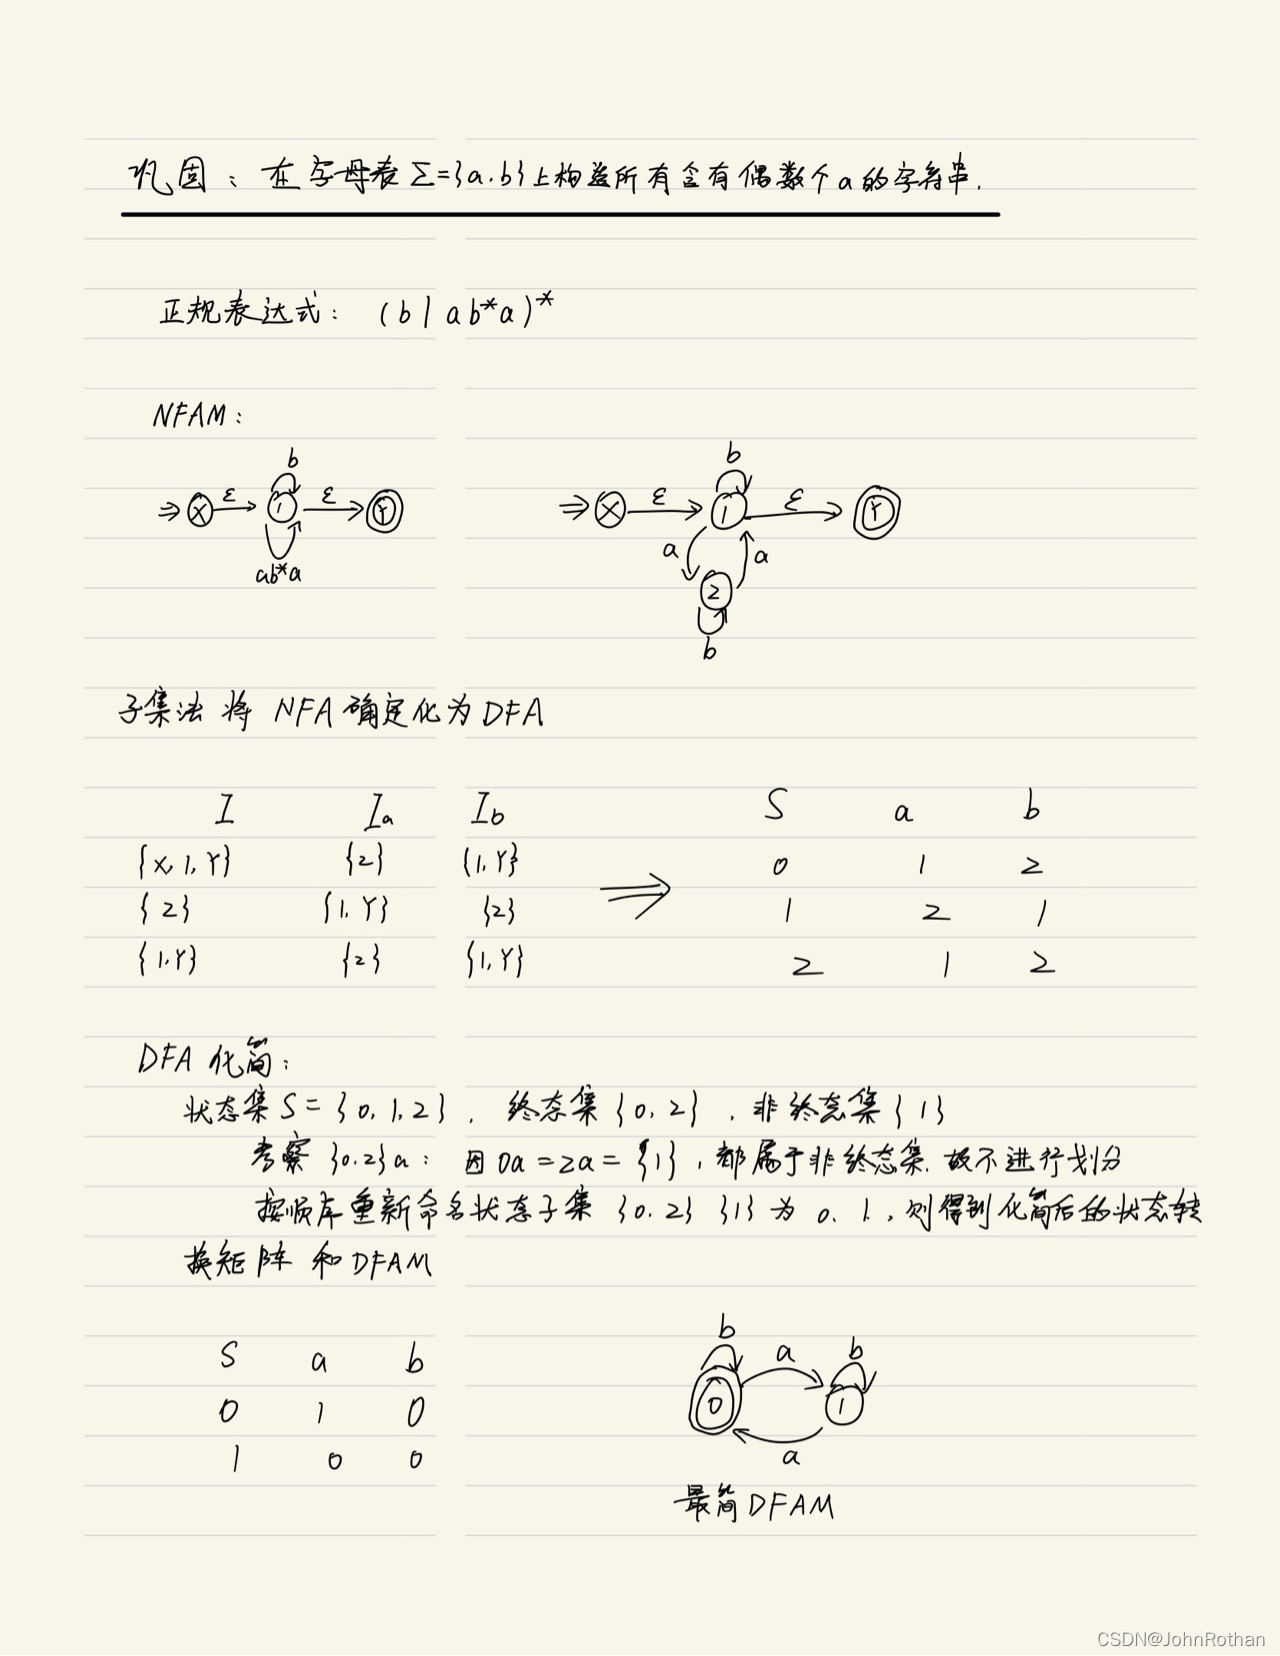 巩固：在字母表Σ={a.b}上构造所有含有偶数个a的字符串.
正规表达式： (b|ab*a)*
NFAM：
b
⇒ X ε 1 ε Y
ab*a
b
⇒ X ε 1 ε Y
a a
2
b
子集法 将 NFA 确定化为 DFA
I Ia Ib S a b
{X,1,Y} {2} {1,Y} 0 1 2
{2} {1,Y} {2} ⇒ 1 2 1
{1.Y} {2} {1,Y} 2 1 2
DFA 化简：
状态集 S={0,1,2}, 终态集{0,2}, 非终态集{1}
考察{0.2}a： 因0a=2a={1}, 都属于非终态集. 故不进行划分
按顺序重新命名状态子集 {0.2} {1} 为 0. 1., 则得到化简后的状态转
换矩阵 和 DFAM
S a b
0 1 0
1 0 0
b a b
0 1
a
最简DFAM
CSDN@JohnRothan